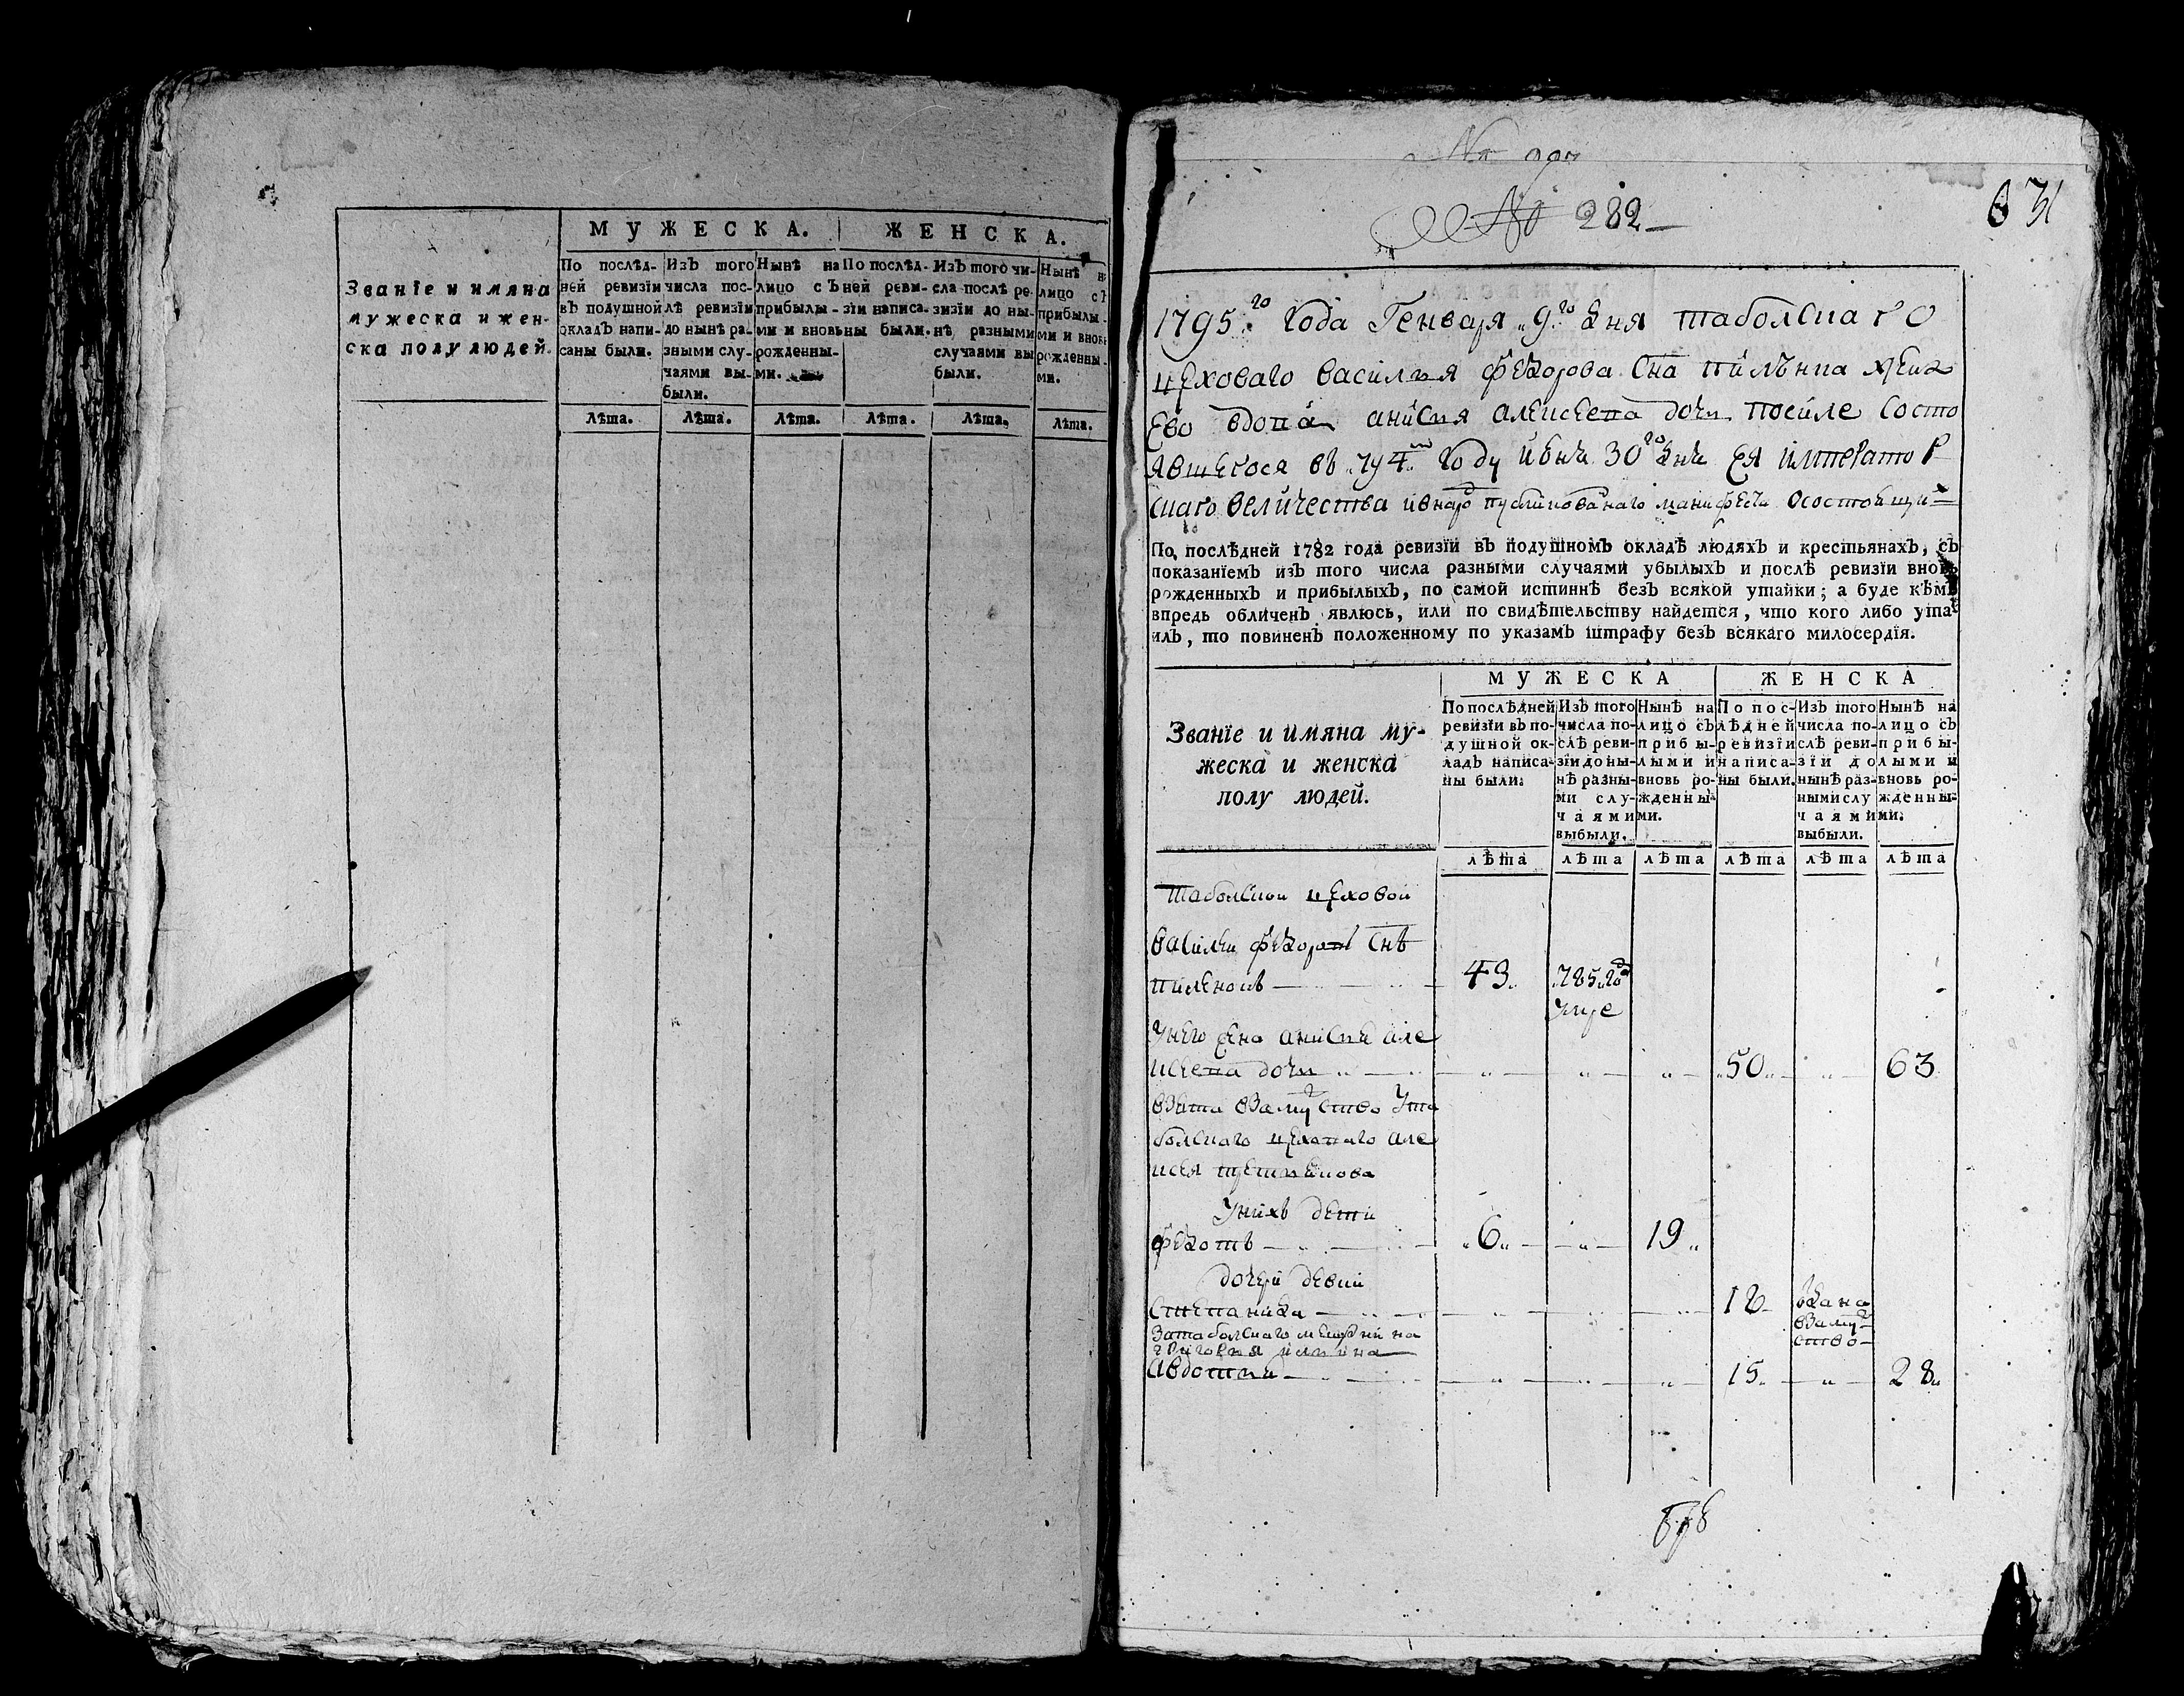 МУЖЕСКА. ЖЕНСКА.
Званїе и имяна мужеска и женска полу людей.
По послѣдней ревизїи въ подушной окладъ написаны были.
Изъ того числа послѣ ревизїи до нынѣ разными случаями выбыли.
Нынѣ на лицо съ прибылыми и вновь рожденными.
По послѣдней ревизїи написаны были.
Изъ того числа послѣ ревизїи до нынѣ разными случаями выбыли.
Нынѣ на лицо съ прибылыми и вновь рожденными.
Лѣта. Лѣта. Лѣта. Лѣта. Лѣта. Лѣта.
№ 282
631
1795го года Генваря 9го дня таболскаго
цеховаго василья федорова сна
ево вдова анисья алексеева дочь после состо
явшегося въ 794м году июня 30го дня ея император
скаго величества и внародъ публикованаго манифеста о состоящихъ
По послѣдней 1782 года ревизїи въ подушномъ окладѣ людяхъ и крестьянахъ, съ
показанїемъ изъ того числа разными случаями убылыхъ и послѣ ревизїи вновь
рожденныхъ и прибылыхъ, по самой истиннѣ безъ всякой утайки; а буде кѣмъ
впредь обличенъ явлюсь, или по свидѣтельству найдется, что кого либо ута
илъ, то повиненъ положенному по указамъ штрафу безъ всякаго милосердїя.
МУЖЕСКА ЖЕНСКА
Званїе и имяна мужеска и женска полу людей.
По послѣдней ревизїи въ подушной окладъ написаны были.
Изъ того числа послѣ ревизїи до нынѣ разными случаями выбыли.
Нынѣ на лицо съ прибылыми и вновь рожденными.
По послѣдней ревизїи написаны были.
Изъ того числа послѣ ревизїи до нынѣ разными случаями выбыли.
Нынѣ на лицо съ прибылыми и вновь рожденными.
лѣта лѣта лѣта лѣта лѣта лѣта
таболской цеховой
василей федоровъ снъ
пиленокъ 43 785 год
умре
у него жена анисья але
ксеева дочь 50 63
взята взамужство у та
болскаго цеховаго але
ксея
у нихъ дети
федотъ 6 19
дочери девки
степанида 18 вдана
взамуж
ство
за таболскаго мещанина
григорья
авдотья 15 28